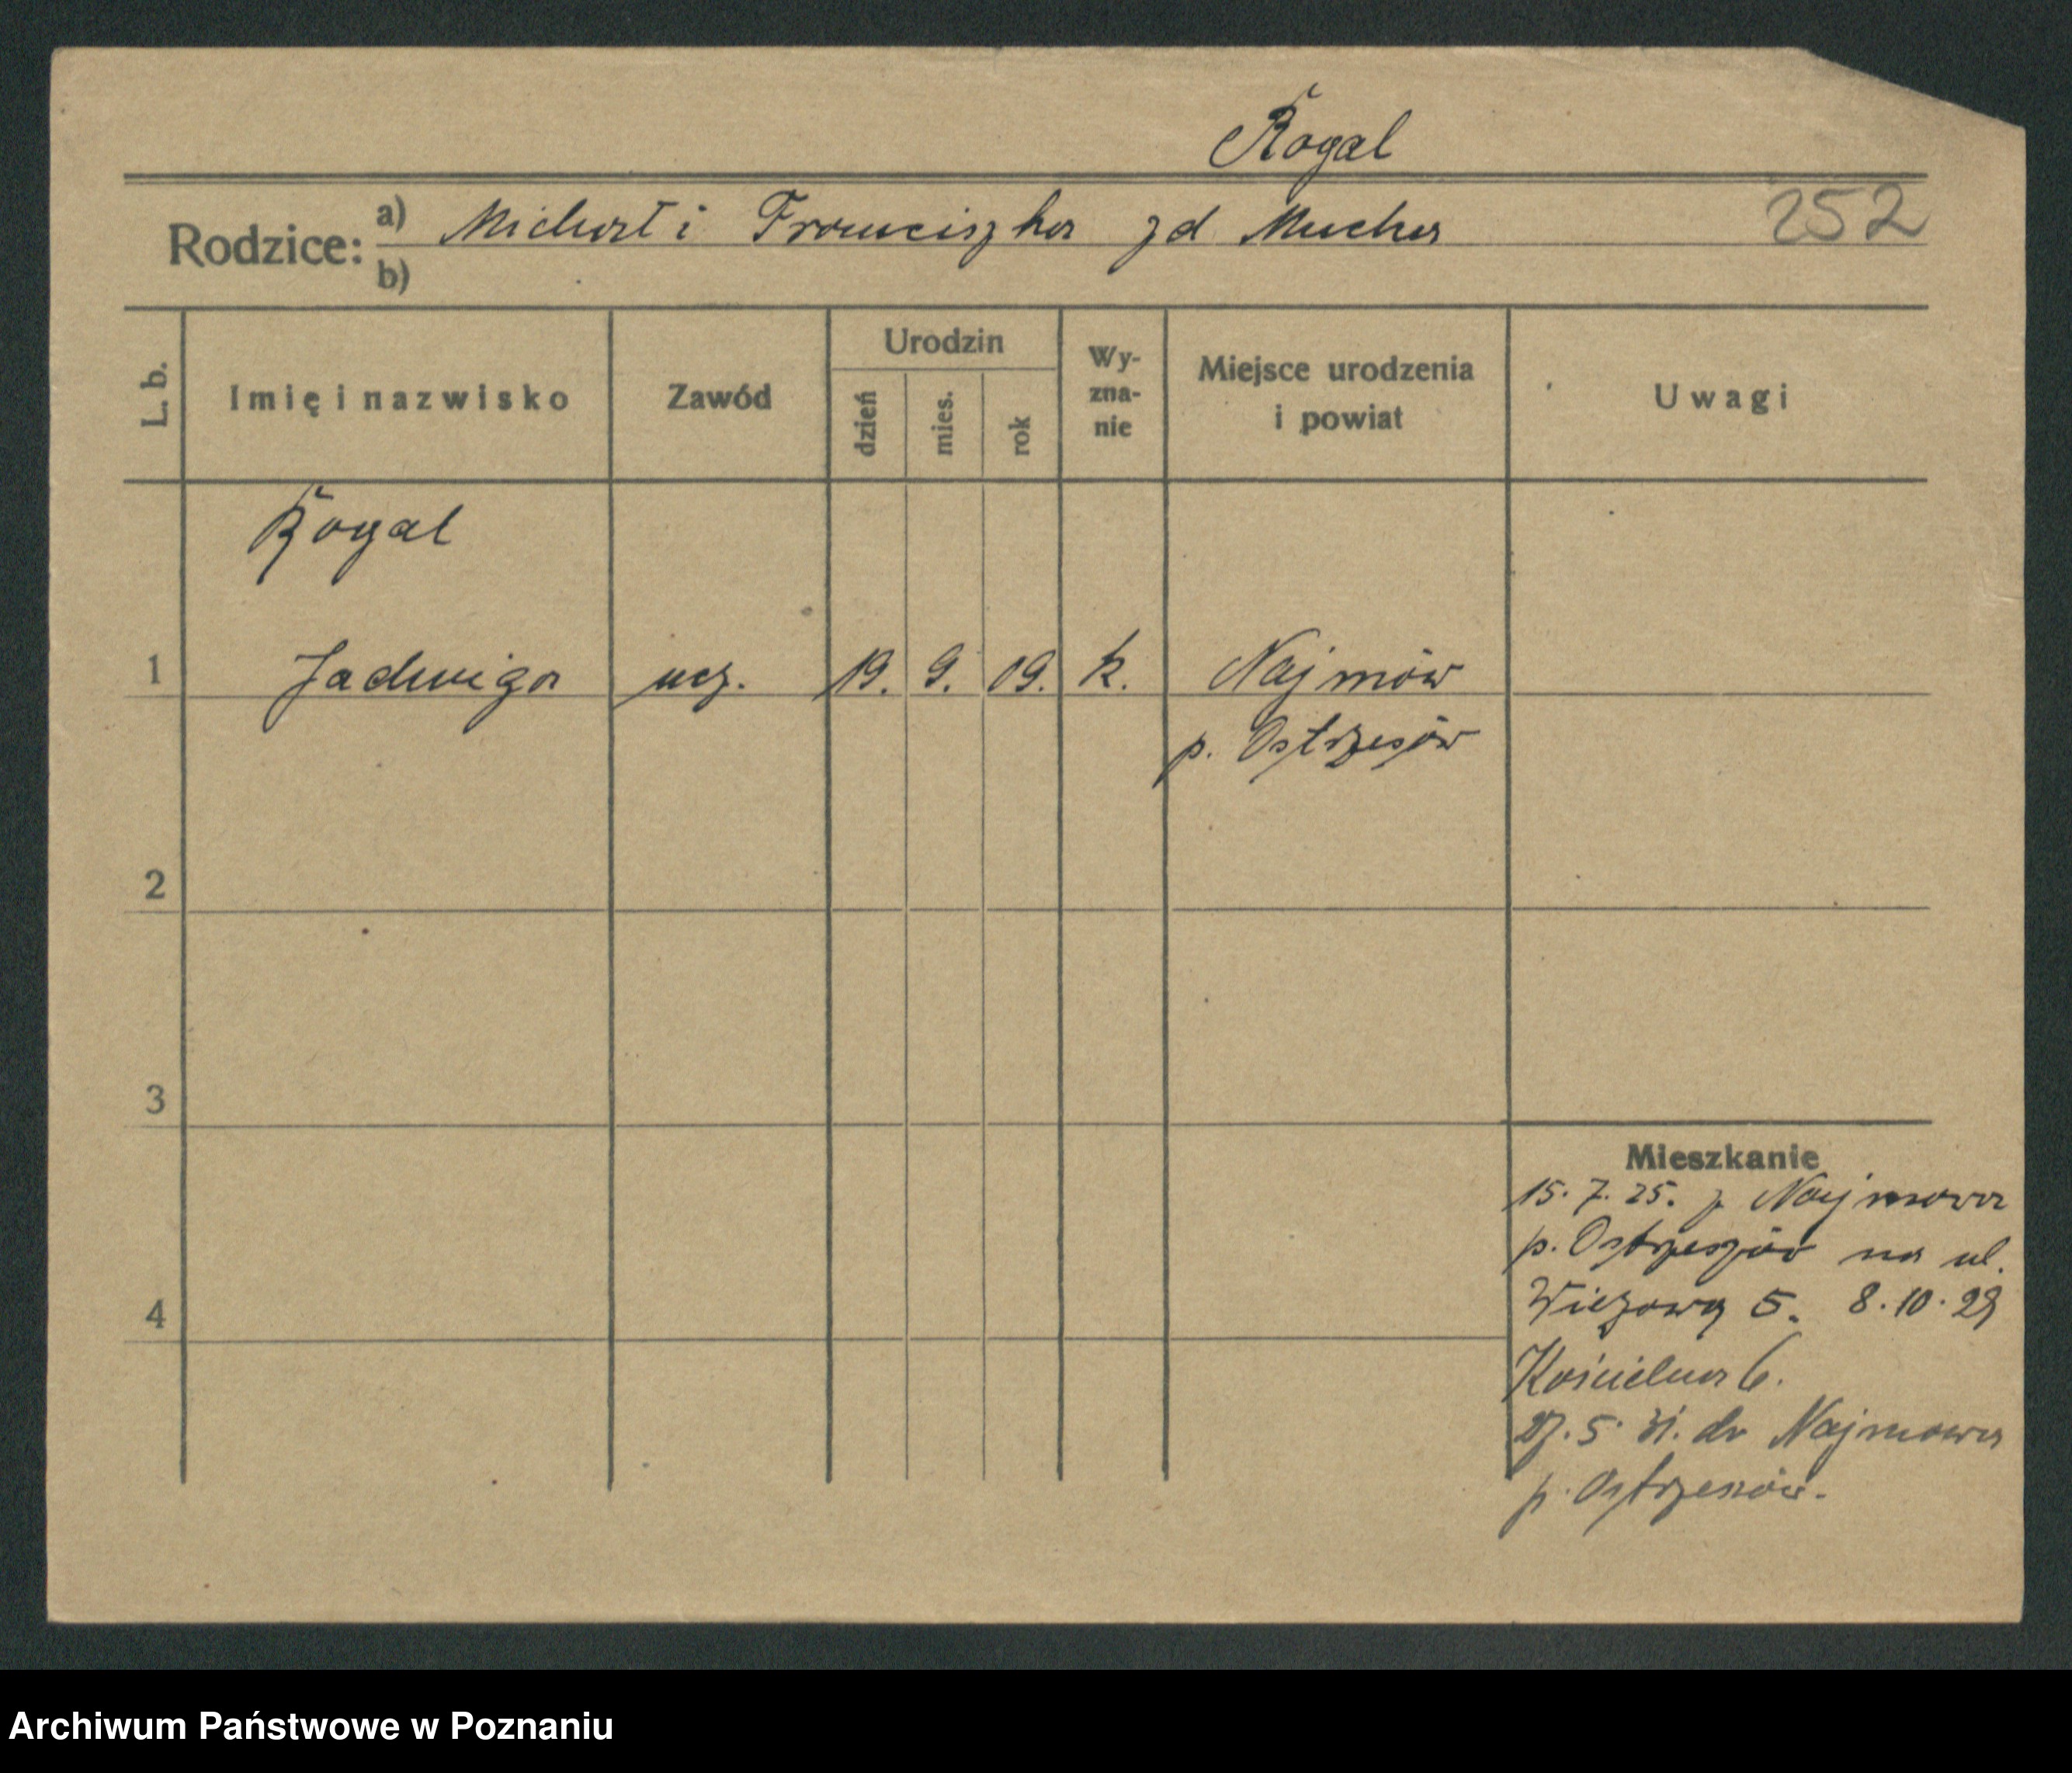 Rogal
Rodzice: a) Michał i Franciszka zd Mucha 252
b)
L. b. Imię i nazwisko Zawód Urodzin dzień mies. rok Wy-zna-nie Miejsce urodzenia i powiat Uwagi
Rogal
1 Jadwiga ucz. 19. 9. 09. k. Najmów
p. Ostrzesów
2
3
Mieszkanie
15. 7. 25. z Najmowa
p. Ostrzeszów na ul.
4 Wiezową 5. 8.10.29
Kościelna 6.
27. 5. 31. do Najmowa
p. Ostrzesów.
Archiwum Państwowe w Poznaniu